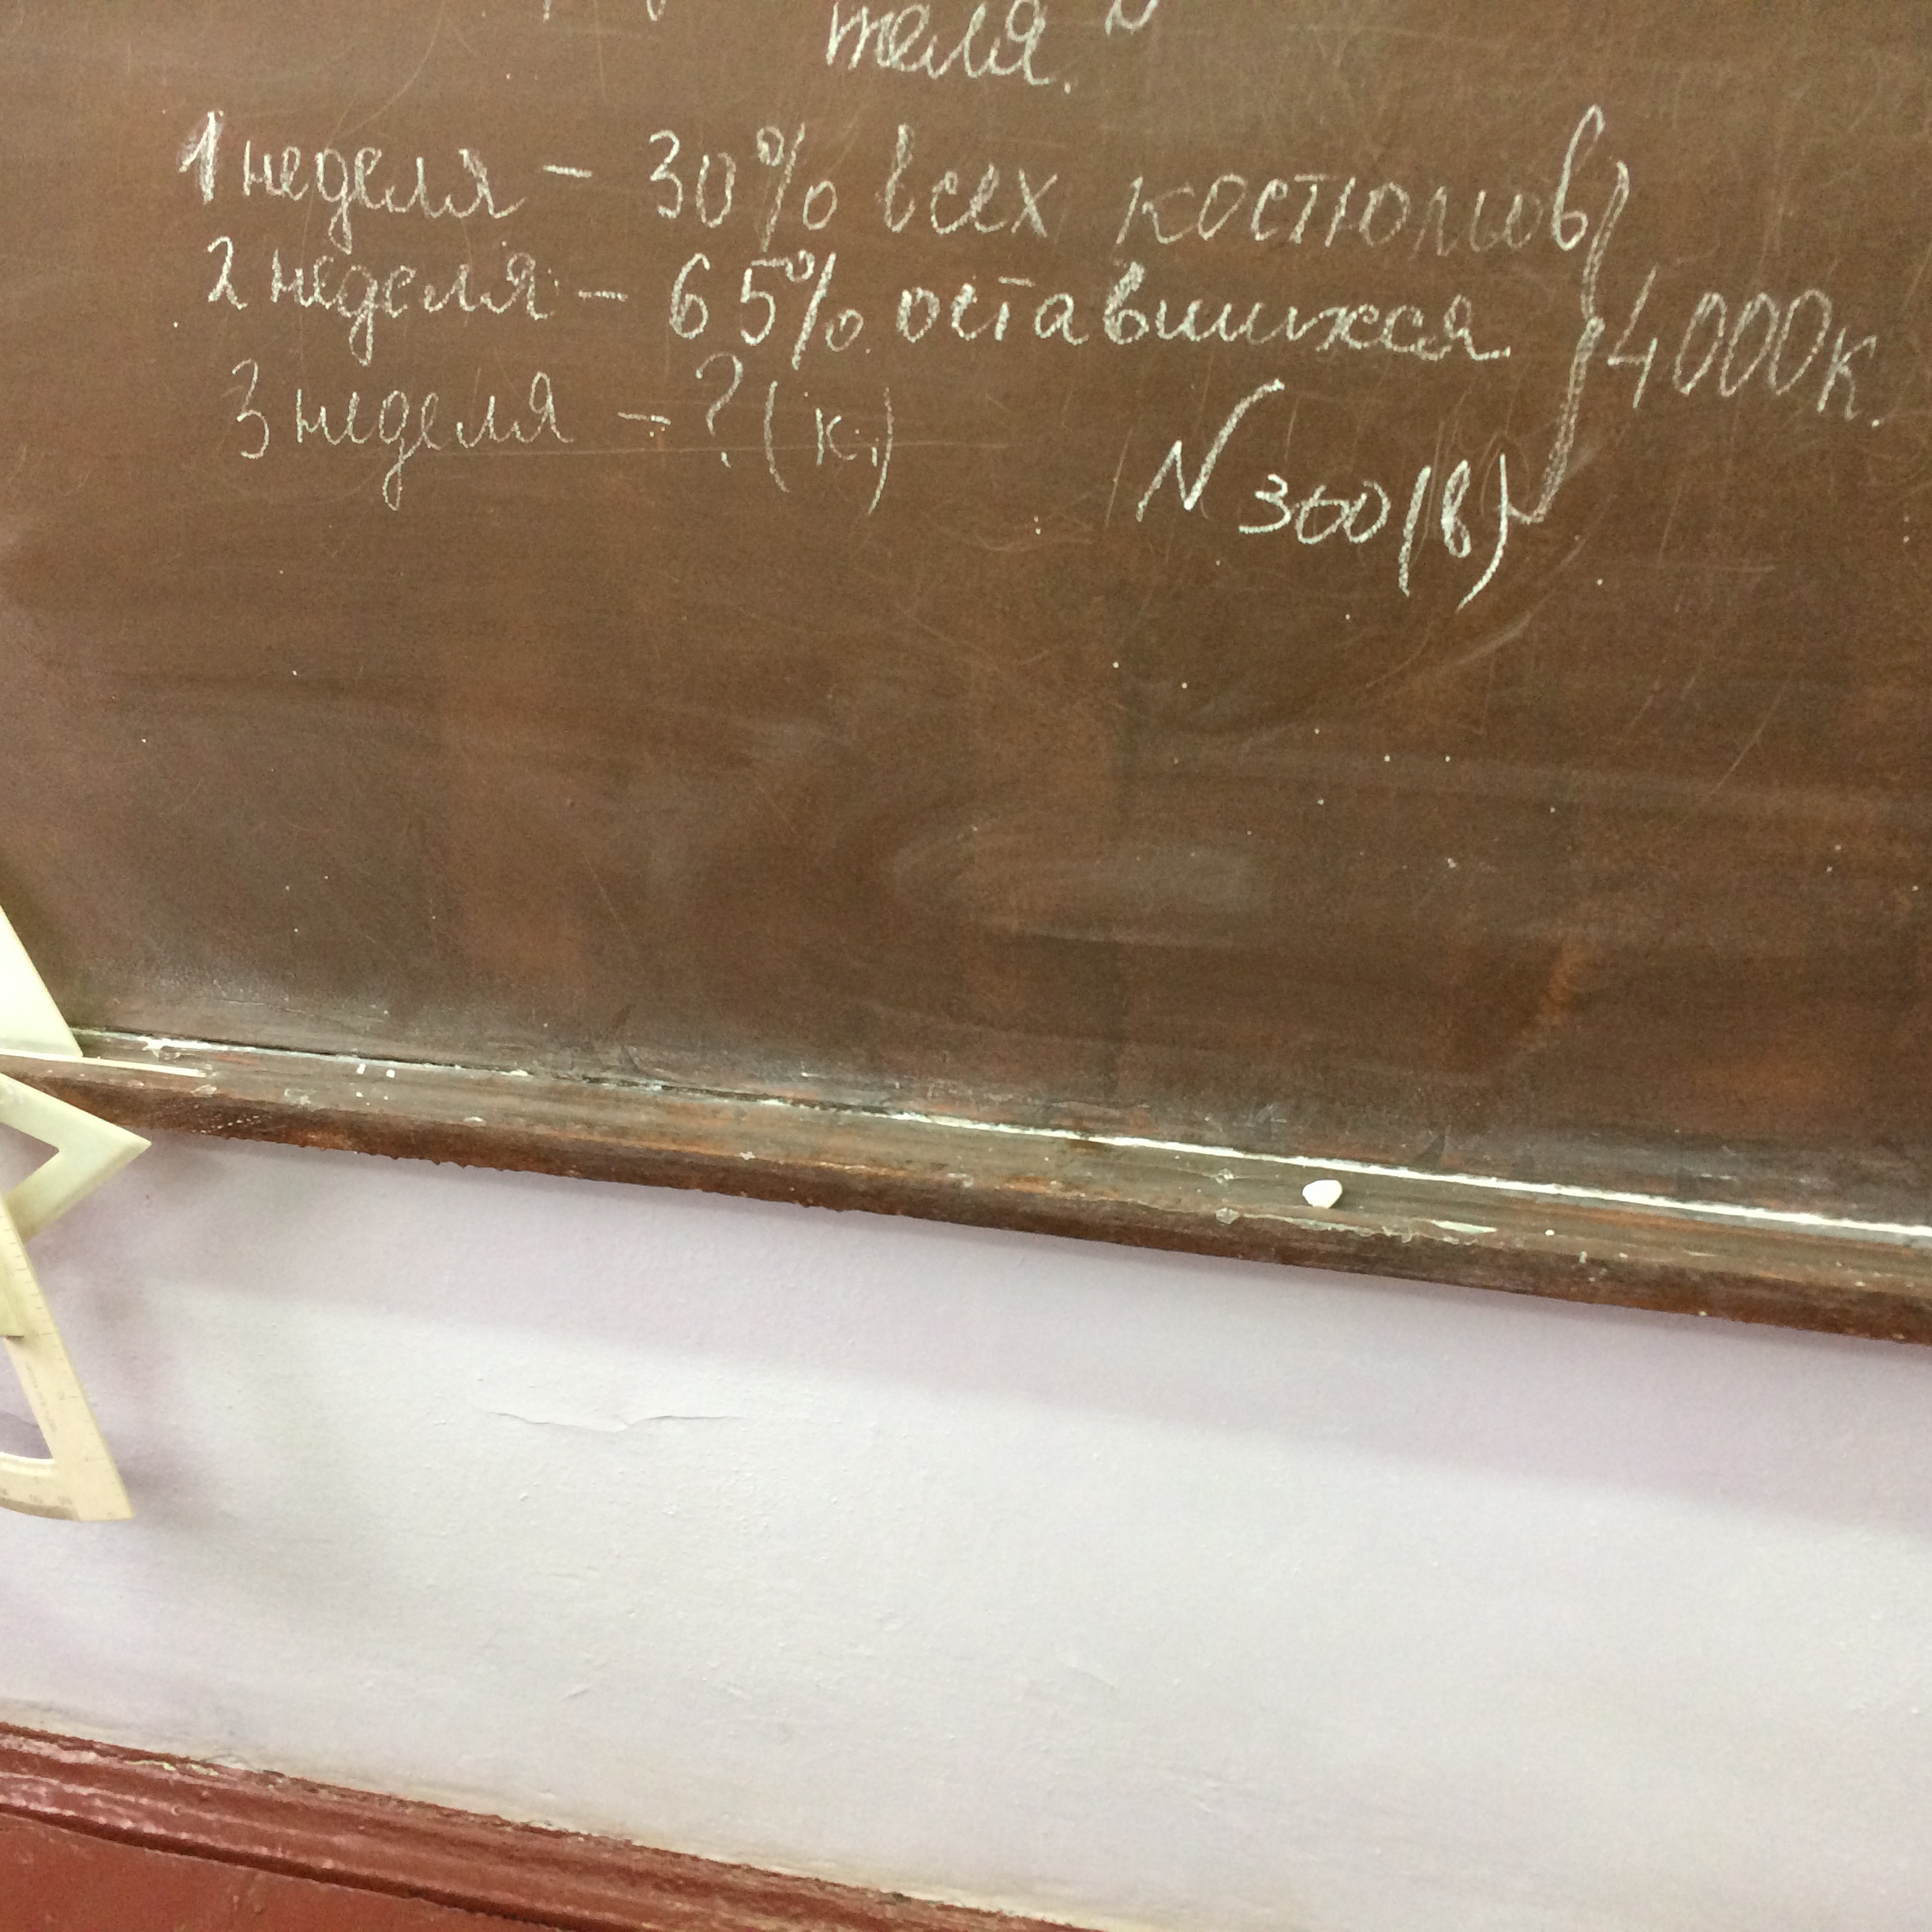 теля. N
1 неделя - 30% всех костюмов
2 неделя - 65% оставшихся
4000 к.
3 неделя - ? (к.)
N 360(в)